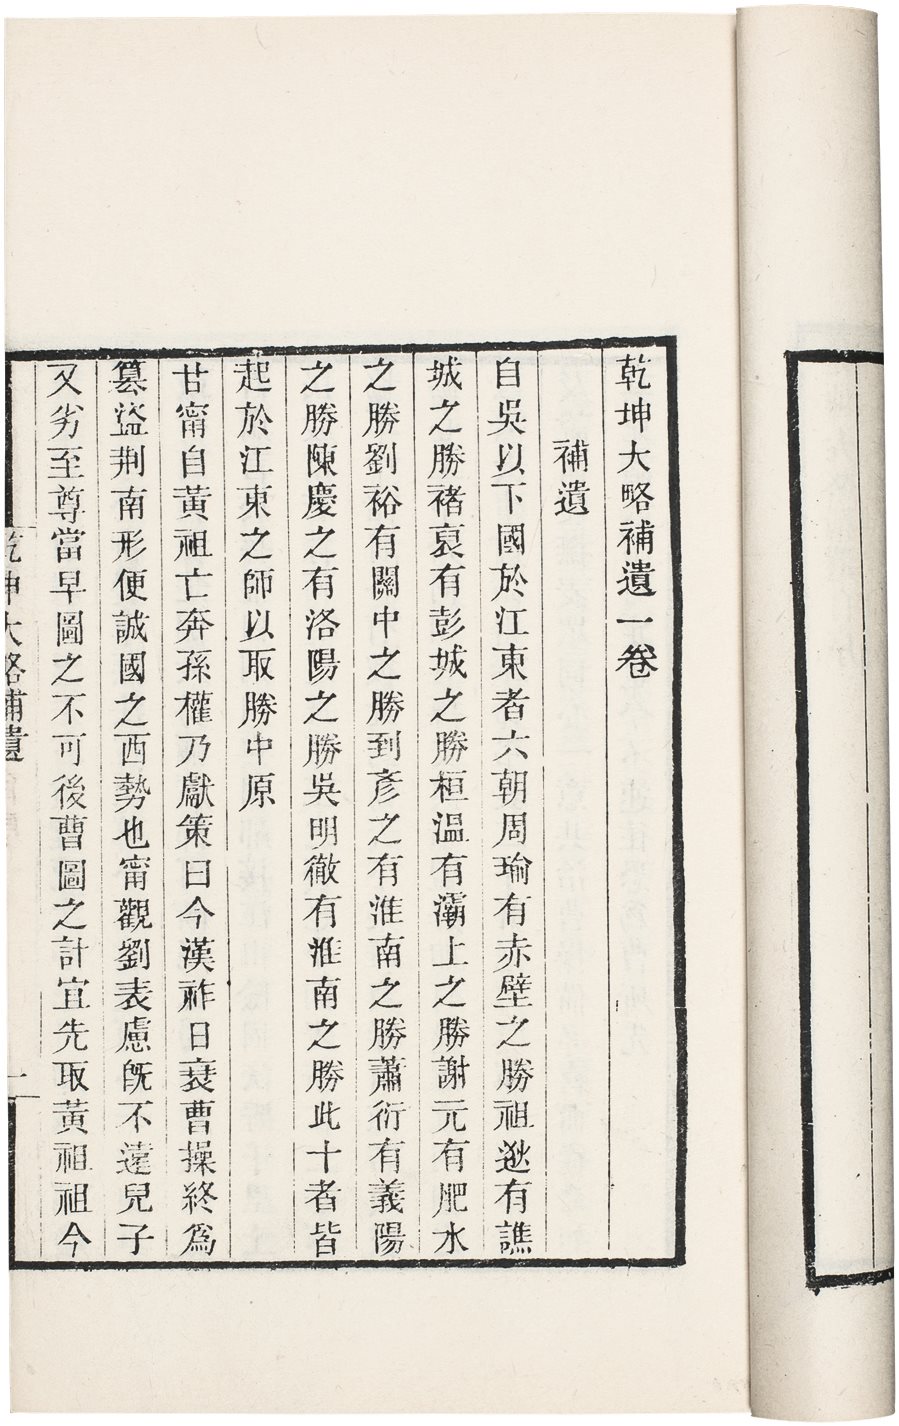 乾坤大略補遺一卷
補遺
自吳以下國於江東者六朝周瑜有赤壁之勝祖逖有譙
城之勝褚裒有彭城之勝桓溫有灞上之勝謝元有肥水
之勝劉裕有關中之勝到彥之有淮南之勝蕭衍有義陽
之勝陳慶之有洛陽之勝吳明徹有淮南之勝此十者皆
起於江東之師以取勝中原
甘甯自黃祖亡奔孫權乃獻策曰今漢祚日衰曹操終為
篡盜荆南形便誠國之西勢也甯觀劉表慮旣不遠兒子
又劣至尊當早圖之不可後曹圖之計宜先取黃祖祖今
乾坤大略補遺
一